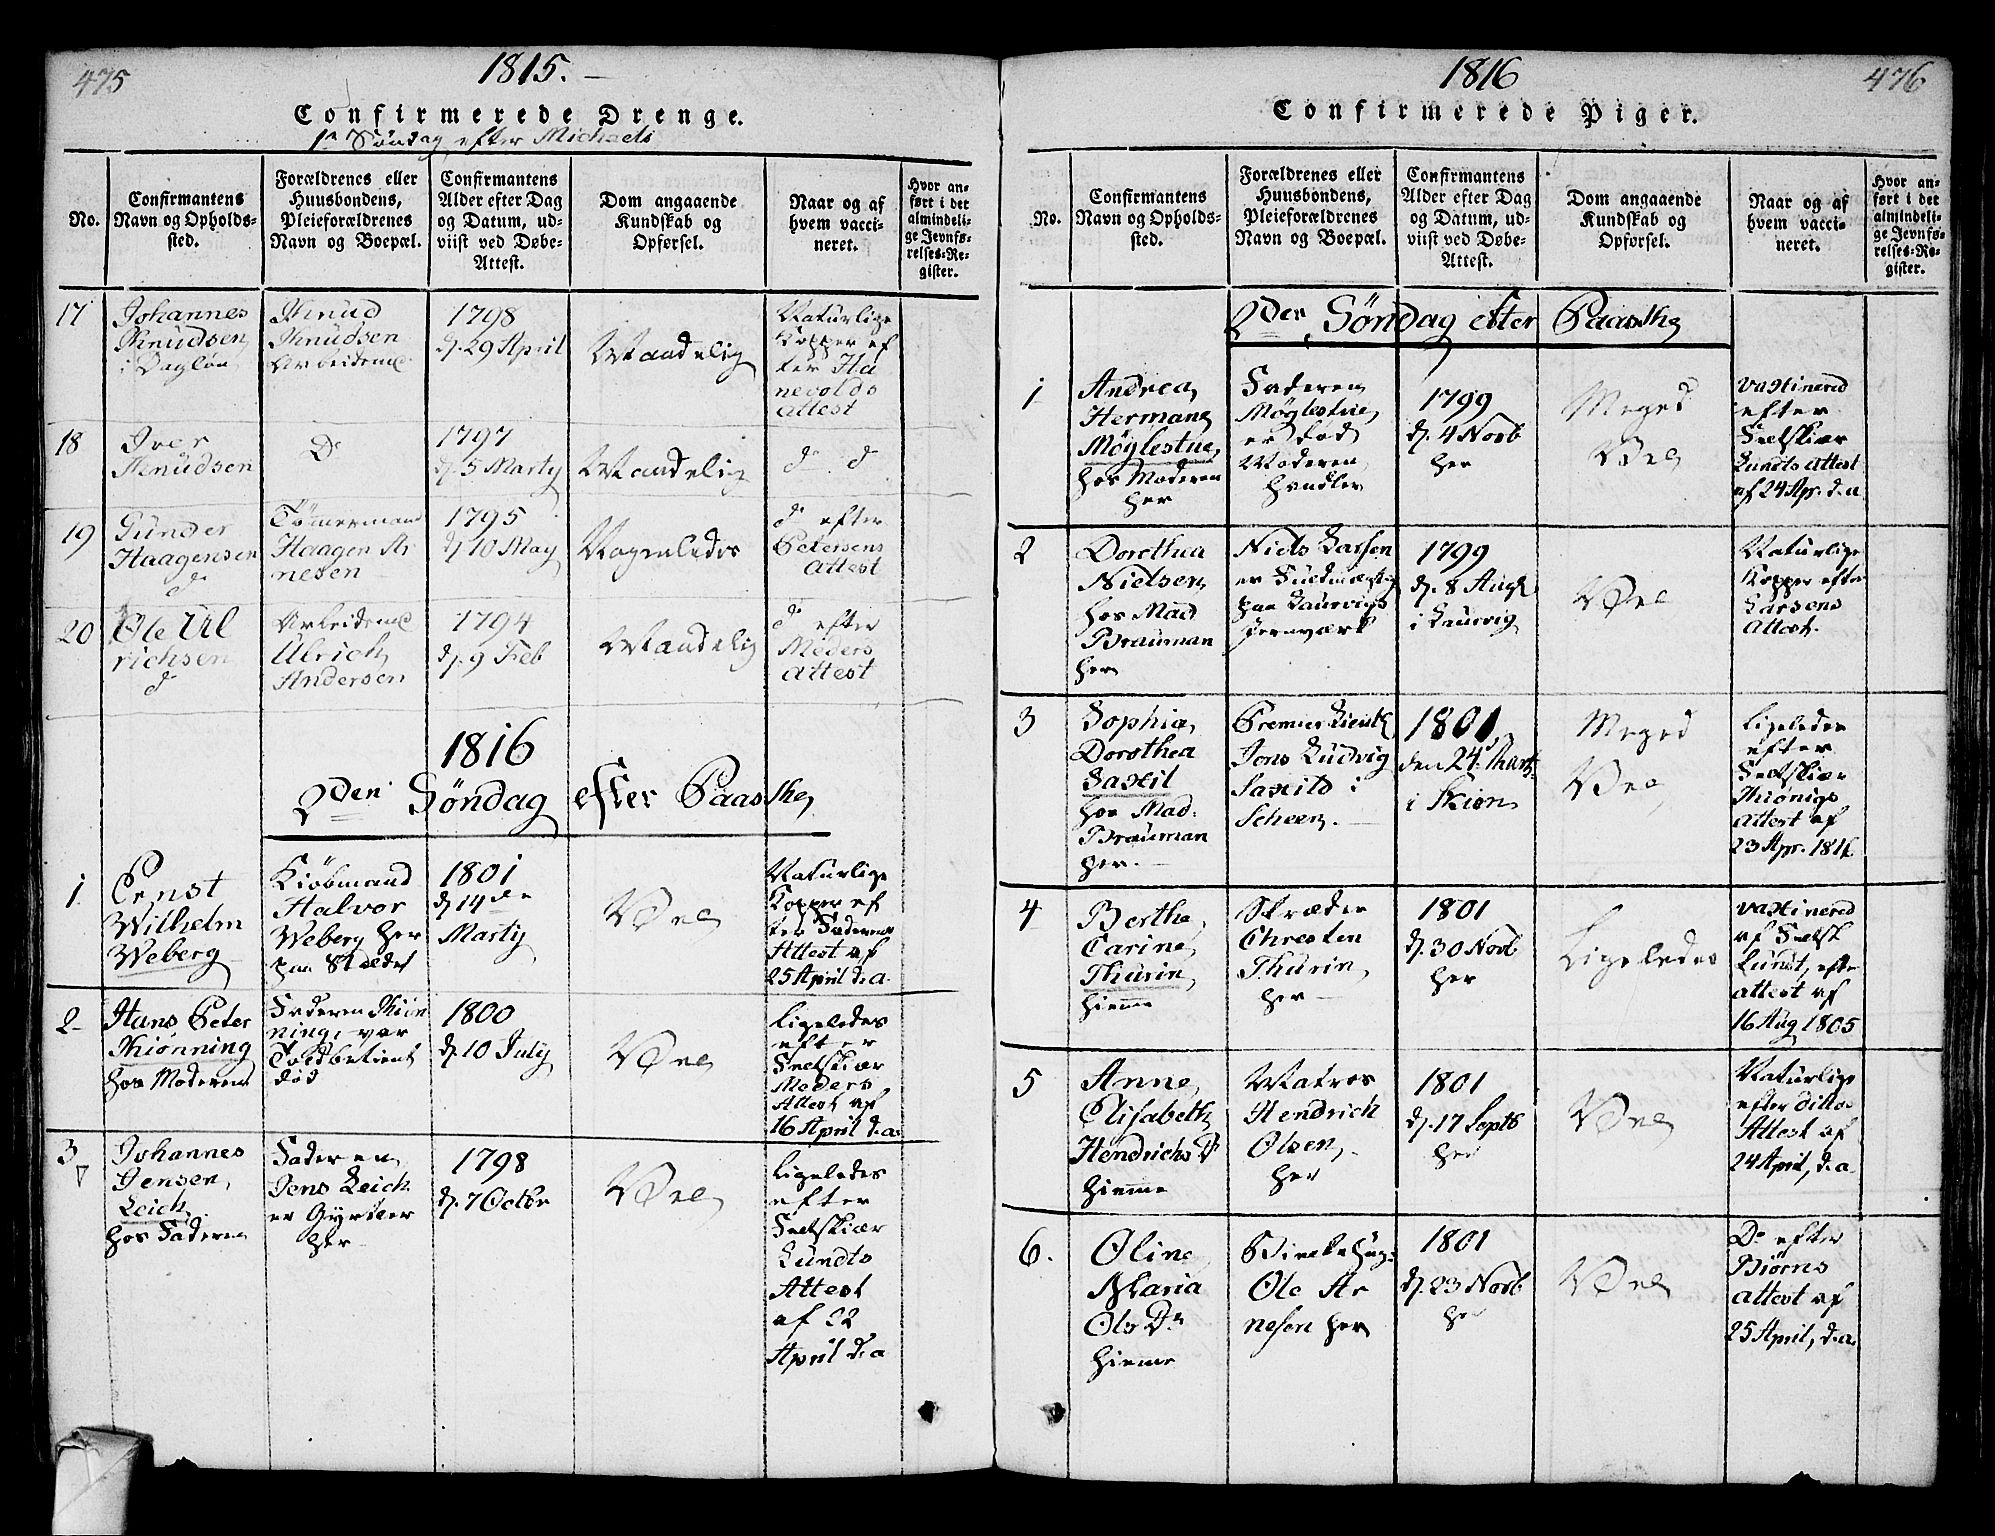 475
1815.
Confirmerede Drenge.
1ste Søndag efter Michaeli
No.
Confirmantens
Navn og Opholds-
sted.
Forældrenes eller
Huusbondens,
Pleieforældrenes
Navn og Boepæl.
Confirmantens
Alder efter Dag
og Datum, ud-
viist ved Døbe-
Attest.
Dom angaaende
Kundskab og
Opførsel.
Naar og af
hvem vacci-
neret.
Hvor an-
ført i det
almindeli-
ge Jevnfø-
relses-Re-
gister.
17
Johannes
Knudsen
i Dagløn
Knud
Knudsen
Arbeidsmd
1798
d. 29 April
Maadelig
Naturlige
Kopper ef
ter Ha
nevolds
attest
18
Iver
Knudsen
Do
1797
d. 5 Marty
Maadelig
do do
19
Gunder
Haagensen
do
Tømmermand
Haagen Ar
nesen
1795
d 10 May
Nogenledes
do efter
Petersens
attest
20
Ole Ul
richsen
do
Arbeidsmd
Ulrich
Andersen
1794
d. 9 Feb
Maadelig
do efter
Meders
attest
1816
2den Søndag efter Paaske
1.
Ernst
Wilhelm
Weberg
Kiøbmand
Halvor
Weberg her
paa Stædet
1801
d 14de
Marty
Vel
Naturlige
Kopper ef
ter Faderens
Attest af
25 April d.a.
2
Hans Peter
Thiønning
hos Moderen
Faderen Thiøn
ning, var
Toldbetient
død
1800
d. 10 July
Vel
ligeledes
efter
Feltskiær
Meders
Attest af
16 April d.a.
3
Johannes
Jensen
Leich
hos Faderen
Faderen
Jens Leich
er Gyrtler
her
1798
d. 7 Octbr
Vel
ligeledes
efter
Feltskiær
Lundts
Attest
af 22
April d.a
1816
476
Confirmerede Piger.
No.
Confirmantens
Navn og Opholds-
sted.
Forældrenes eller
Huusbondens,
Pleieforældrenes
Navn og Boepæl.
Confirmantens
Alder efter Dag
og Datum, ud-
viist ved Døbe-
Attest.
Dom angaaende
Kundskab og
Opførsel.
Naar og af
hvem vacci-
neret.
Hvor an-
ført i det
almindeli-
ge Jevnfø-
relses-Re-
gister.
2den Søndag efter Paaske
1
Andrea
Hermana
Møglestue
hos Moderen
her
Faderen
Møglestue,
er død
Moderen
Handler
1799
d. 4 Novb
her
Meged
Vel
vaxinered
efter
Feltskiær
Lundts attest
af 24 Apr. d.a
2
Dorothea
Nielsen
hos Mad
Brauman
her
Niels Larsen
er Fuldmægtig
paa Laurvigs
Jernværk
1799
d. 8 Augt
i Laurvig
Vel
Naturlige
Kopper efter
Larsens
attest.
3
Sophia
Dorothea
Saxil
hos Mad.
Brauman
her.
Premier Lieutn
Jens Ludvig
Saxild i
Scheen.
1801
den 24 Marty
i Skien
Meged
Vel
ligeledes
efter
Feltskiær
Thiønigs
attest af
23 Apr. 1816
4
Berthe
Carine
Thurin,
hiemme
Skræder
Chresten
Thurin,
her
1801
d. 30 Novb
her
Ligeledes
vaxinered
af Feltsk
Lundt, efter
attest af
16 Aug 1805
5
Anne
Elisabeth
Hendrichs Dr
hiemme
Matros
Hendrich
Olsen,
her
1801
d. 17 Septb
her
Vel
Naturlige
efter ditto
Attest af
24 April, d.a
6.
Oline
Maria
Ols Dr
hiemme
Ole Ar
nesen her
1801
d. 23 Novb
her
Vel
Do efter
Biørns
attest af
25 April, d.a.